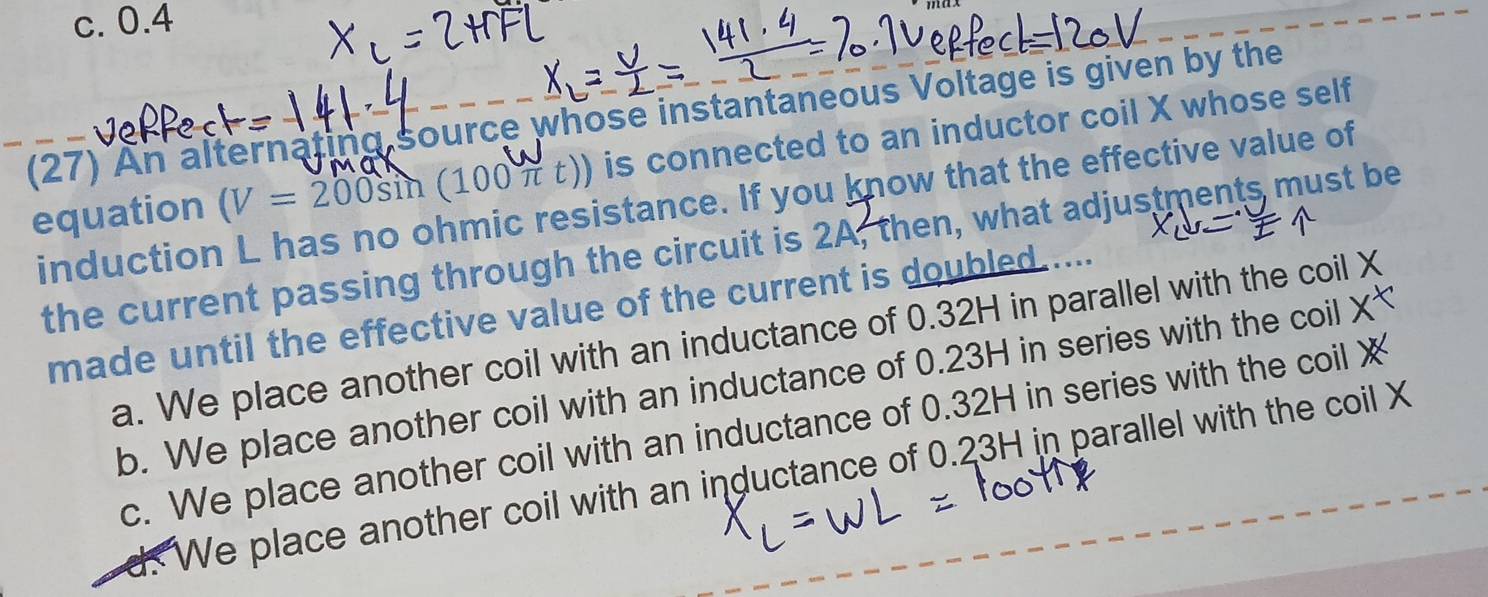 c. 0.4
X L = 2πFL
max
X L = V/I = 141.4/2 = 70.7 Veffect=120V
Veffect = 141.4
(27) An alternating source whose instantaneous Voltage is given by the
Vmax W
equation (V = 200sin (100 π t)) is connected to an inductor coil X whose self
induction L has no ohmic resistance. If you know that the effective value of
the current passing through the circuit is 2A, then, what adjustments must be
made until the effective value of the current is doubled .....
X L ↓ = V/I ↑
a. We place another coil with an inductance of 0.32H in parallel with the coil X
b. We place another coil with an inductance of 0.23H in series with the coil X
c. We place another coil with an inductance of 0.32H in series with the coil X
d. We place another coil with an inductance of 0.23H in parallel with the coil X
X L = WL = 100π